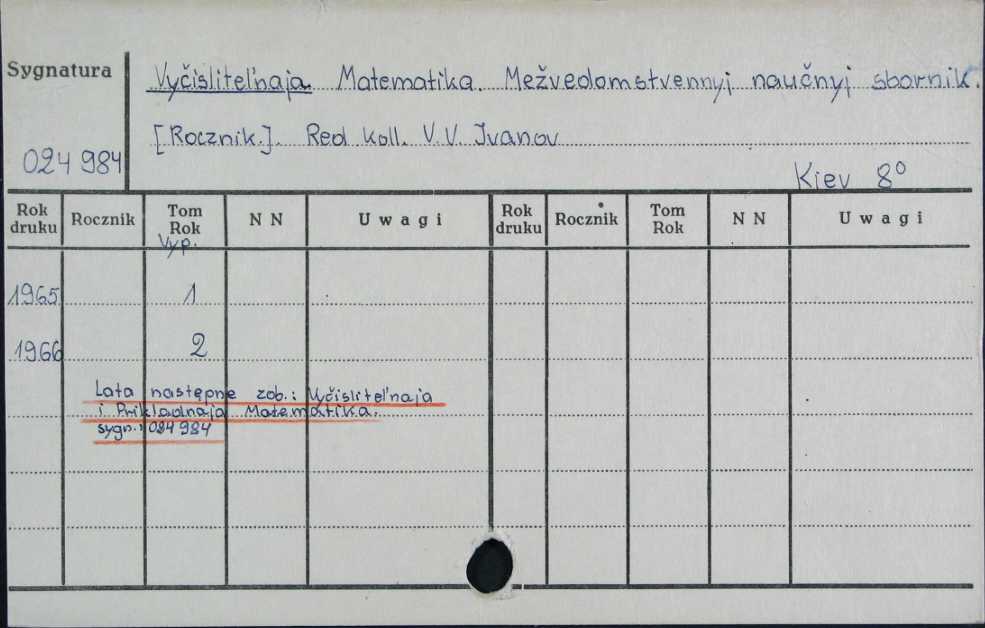 Sygnatura
Vyčislitel'naja Matematika. Mežvedomstvennyj naučnyj sbornik.
[Rocznik.]. Red koll. V.V. Ivanov
024 984
Kiev 8°
Rok druku Rocznik Tom Rok N N Uwagi Rok druku Rocznik Tom Rok N N Uwagi
Vyp.
1965 1
1966 2
Lata następne zob.: Vyčislitel'naja
i Prikladnaja Matematika.
sygn.: 024 984